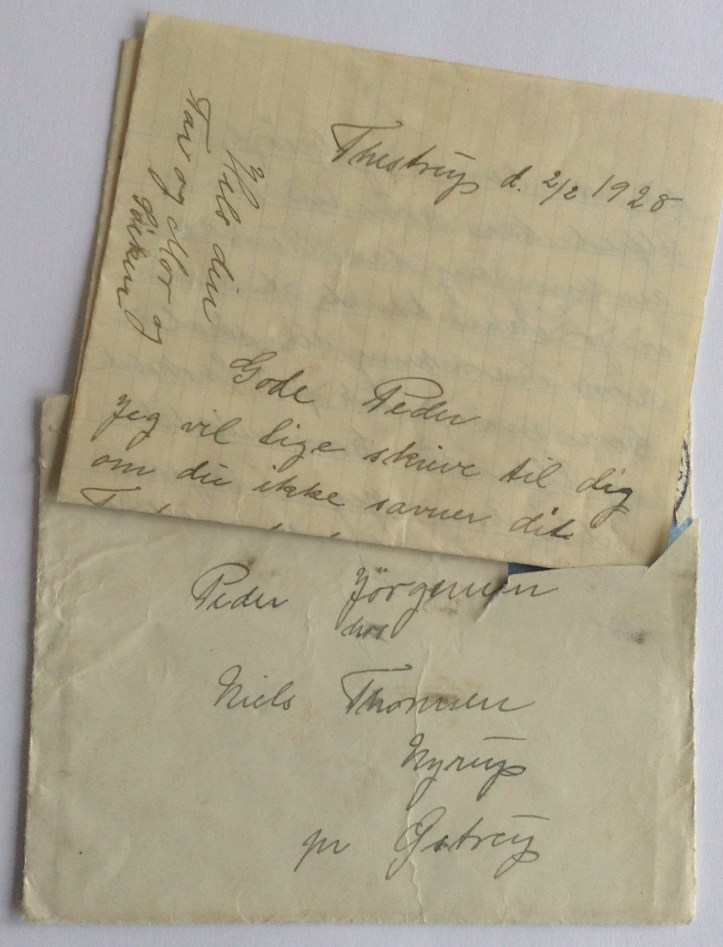 Thestrup d. 2/2 1928
Hils din
Far og Mor og
Gode Peder
Jeg vil lige skrive til dig
om du ikke savner dit
Peder Jörgensen
hos
Niels Thomsen
Nyrup
pr Gstrup